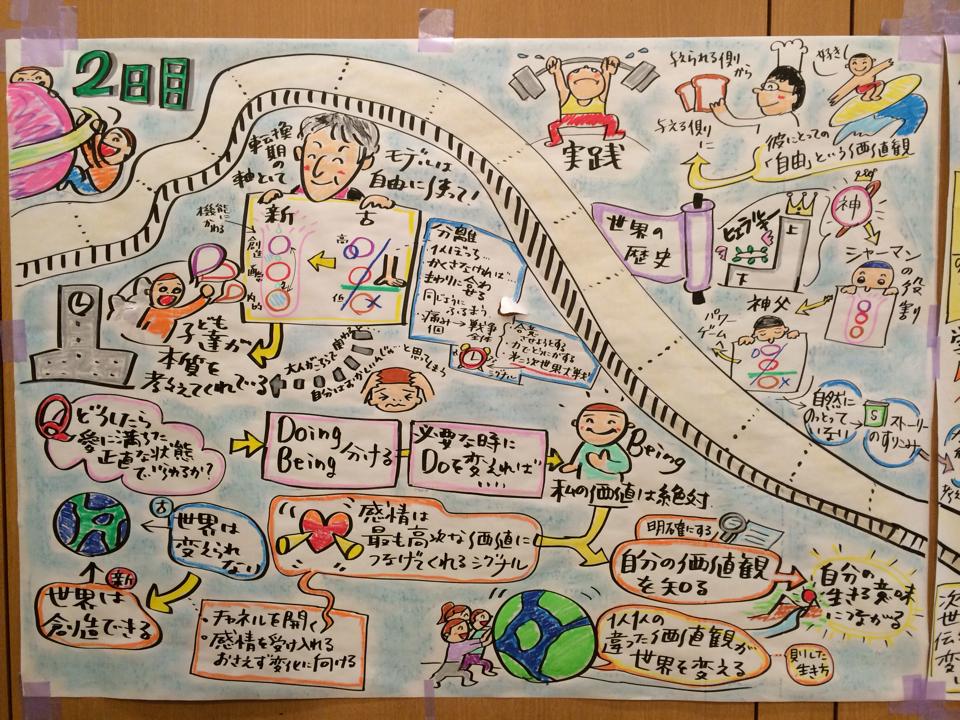 2日目
転換
期の
軸として
モデルは
自由に使って!
新
古
機能に
かわる
創造
内的
高
低
分離
1人ぼっち…
かくさなければ…
まわりに合わせる
同じように
ふるまう
痛み→戦争
個
全体
合意
させようとする
力でどうにかする
第二次世界大戦
シグナル
子ども
達が
本質を
考えてくれている
大人がこう言うから
自分はおかしいんじゃ…と思ってしまう
実践
与えられる側
から
与える側
に
好き!
彼にとっての
「自由」という価値観
世界の
歴史
ヒエラルキー
上
下
神
シャーマン
の役割
神父
パワー
ゲームへ
自然に
のっとって
いない
S
ストーリー
のすりこみ
Q
どうしたら
愛に満ちた
正直な状態
でいられるか?
Doing
Being
分ける
必要な時に
Doを変えれば
いい
Being
私の価値は絶対
古
世界は
変えられ
ない
新
世界は
創造できる
感情は
最も高次な価値に
つなげてくれるシグナル
・チャネルを開く
・感情を受け入れる
おさえず変化に向ける
明確にする
自分の価値観
を知る
自分の
生きる意味
につながる
1人1人の
違った価値観が
世界を変える
則した
生き方